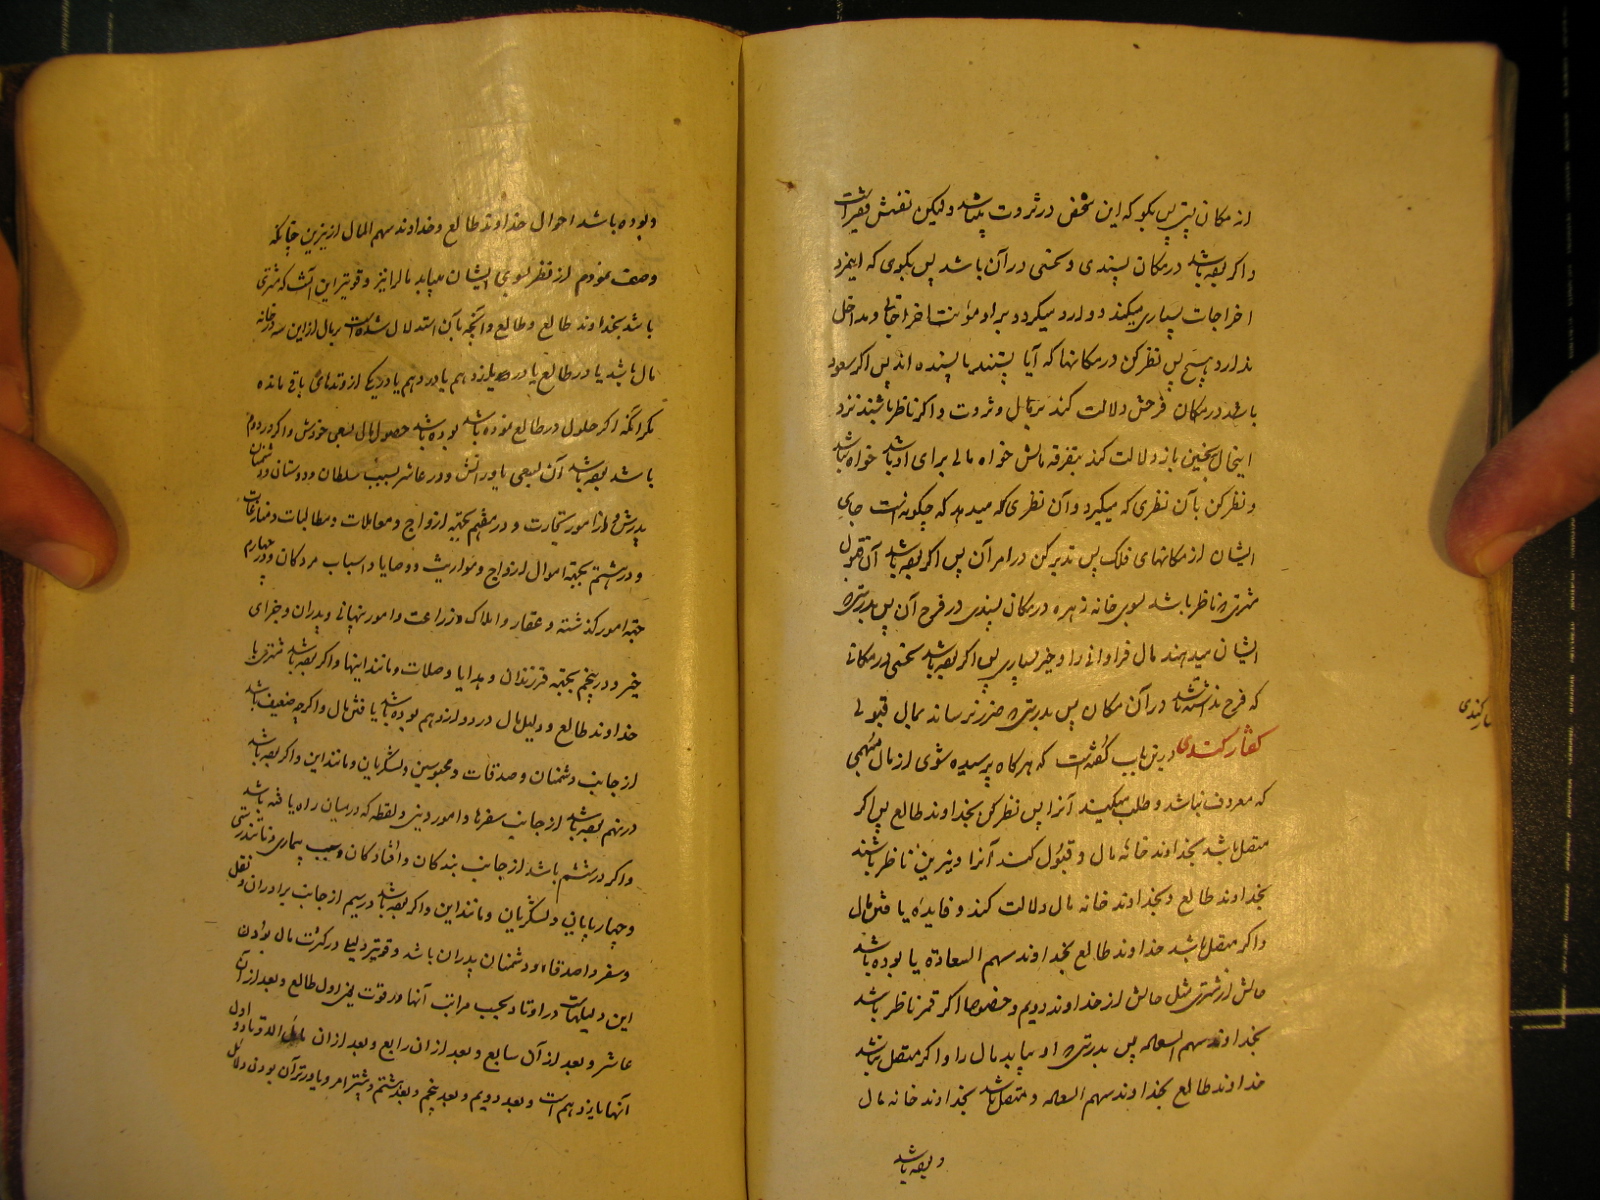 از مکان نیز پس بگو که این شخص در ثروت میباشد ولیکن نفسش فقیر است
و اگر بوده باشد در مکان پسندی و نحسی در آن باشد پس بگوی که این مرد
اخراجات بسیاری میکند و وارد میگردد بر او مؤنت اخراجاتی و مداخل
ندارد هیچ پس نظر کن در مکانها که آیا پسندند یا پسنده اند پس اگر سعود
باشند در مکان فرحش دلالت کند بر مال و ثروت و اگر ناظر باشند نزد
اینحال بنحسین باز دلالت کند بتفرقه مالش خواه مالی برای او باشد خواه نباشد
و نظر کن بآن نظری که میگیرد و آن نظری که میدهد که چگونه است جای
ایشان از مکانهای فلک پس تدبیر کن در امر آن پس اگر بوده باشد آن قبول
مشتری و ناظر باشد بسوی خانه زهره در مکان پسندی در فرح آن پس بدرستیکه
ایشان میدهند مال فراوانی را و خیر بسیاری پس اگر بوده باشد نحسی در مکانی
که فرح نداشته باشد در آن مکان پس بدرستیکه ضرر نرساند بمال قبولی
گفتار کندی درین باب گفته است که هرگاه پرسیده شوی از مال مبهمی
که معروف نباشد و طلب میکنید آنرا پس نظر کن بخداوند طالع پس اگر
متصل باشد بخداوند خانه مال و قبول کند آنرا و نیرین ناظر باشند
بخداوند طالع و بخداوند خانه مال دلالت کند و فایده یافتن مال
و اگر متصل باشد خداوند طالع بخداوند سهم السعادة یا بوده باشد
حالش از مشتری مثل حالش از خداوند دویم و خصوصا اگر قمر ناظر باشد
بخداوند سهم السعاده پس بدرستیکه او بیابد مال را و اگر متصل نباشد
خداوند طالع بخداوند سهم السعاده و متصل باشد بخداوند خانه مال
و بوده باشد
کندی
و بوده باشد احوال خداوند طالع و خداوند سهم المال از نیرین چنانکه
وصف نمودم از نظر بسوی ایشان بیابد مال را نیز و قویتر این آنست که مشتری
باشد بخداوند طالع و طالع و آنچه بآن استدلال شده است بر مال از این سه در خانه
مال باشد یا در طالع یا در یازدهم یا در دهم یا در یکی از وتدهای باقی مانده
مگر آنکه اگر حلول در طالع نموده باشد بوده باشد حصول مال بسعی خودش و اگر در دوم
باشد بوده باشد آن بسعی یاورانش و در عاشر بسبب سلطان و دوستان و دشمنان
پدرش و از امور تجارت و در هفتم بجهة ازواج و معاملات و مطالبات و منازعات
و در هشتم بجهة اموال ازواج و مواریث و وصایا و اسباب مردگان و در چهارم
بجهة امور گذشته و عقار و املاک و زراعت و امور پنهانی و پدران و جزای
خیر و در پنجم بجهة فرزندان و هدایا و صلات و مانند اینها و اگر بوده باشد مشتری با
خداوند طالع و دلیل مال در دوازدهم بوده باشد یافتن مال و اگرچه ضعیف باشد
از جانب دشمنان و صدقات و محبوسین و لشگریان و مانند این و اگر بوده باشد
در نهم بوده باشد از جانب سفرها و امور دینی و لقطه که در میان راه یافته باشد
و اگر در ششم باشد از جانب بندگان و افتادگان و بسبب بیماری و ناتندرستی
و چهارپایان و لشگریان و مانند این و اگر بوده باشد در سیم از جانب برادران و نقل
و سفر و اصدقاء و دشمنان پدران باشد و قویتر دلیلی در کثرت مال بودن
این دلیلهاست در اوتاد بحسب مراتب آنها در قوت یعنی اول طالع و بعد از آن
عاشر و بعد از آن سابع و بعد از آن رابع و بعد از آن مایل الاوتاد و اول
آنها یازدهم است و بعد دویم و بعد پنجم و بعد هشتم و بیشتر امر و یاورتر آن بودن دلائل